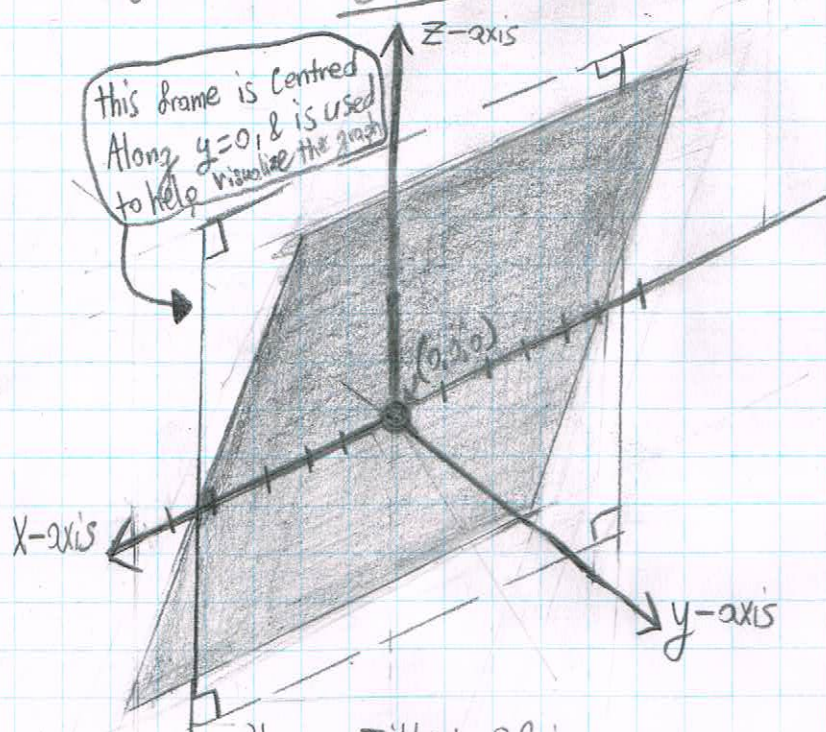 z-axis
this frame is Centred
Along y=0, & is used
to help visualize the graph
(0,0,0)
X-axis
y-axis